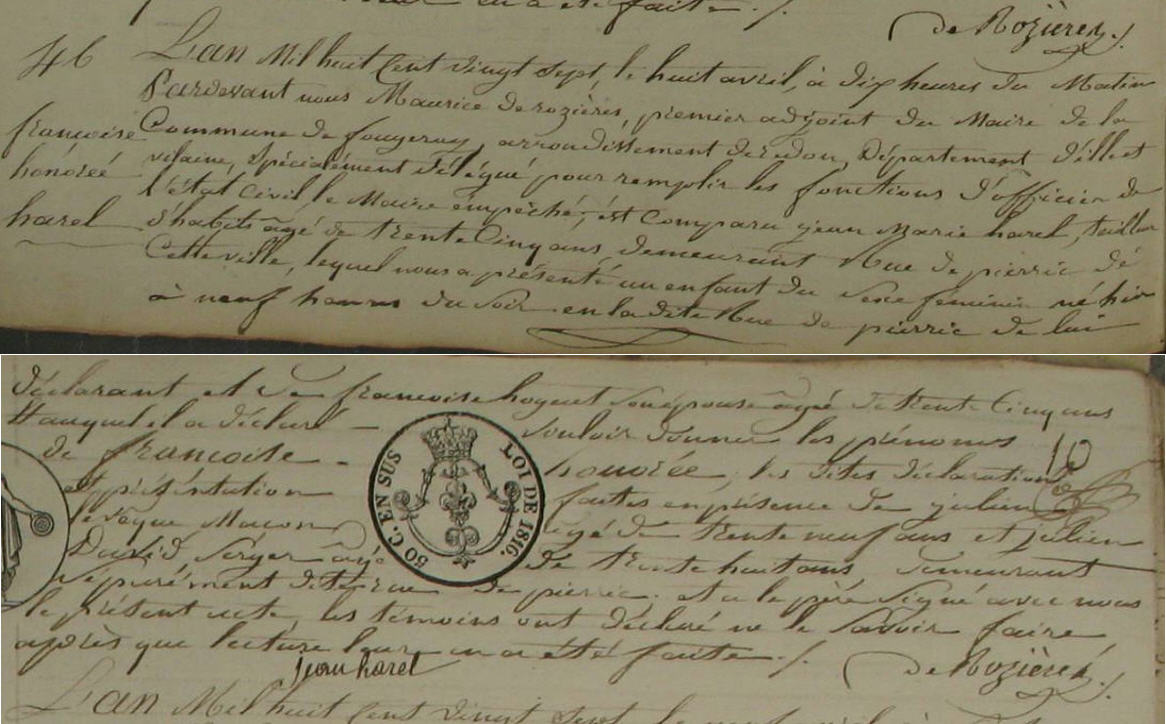 leur en a été faite ./.
de Rozières ./.
46
françoise
honorée
harel
L'an Mil huit Cent vingt Sept, le huit avril, à dix heures du Matin
Pardevant nous Maurice derozières, premier adjoint du Maire de la
Commune de fougeray, arrondissement deredon, Département d'illeet
vilaine, Spécialement délégué pour remplir les fonctions d'officier de
l'état Civil le Maire empêché, est Comparu jean Marie harel, tailleur
d'habits agé de trente Cinq ans, demeurant Rue de pierric de
Cette ville, lequel nous a présenté un enfant du Sexe feminin né hier
à neuf heures du Soir en la dite Rue de pierric de lui
déclarant et de françoise hoguet Son épouse agé de trente Cinq ans
auquel il a déclaré vouloir donner les prénoms
de françoise honorée, les dites déclaration
et présentation faites en présence de julien
levêque Maçon agé de trente neuf ans et julien
David Serger agé de trente huit ans demeurant
Séparément dite rue de pierric. et a le père Signé avec nous
le présent acte, les témoins ont déclaré ne le Savoir faire
après que lecture leur en a été faite ./.
jean harel
de Rozières ./.
10
50 C. EN SUS
LOI DE 1816.
L'an Mil huit Cent vingt Sept le